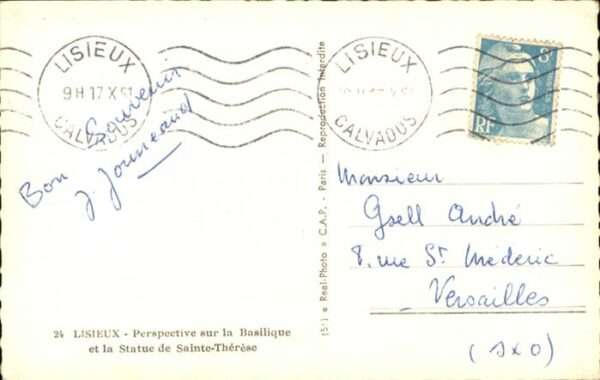 LISIEUX
9H 17 X 51
CALVADOS
LISIEUX
CALVADOS
8F
RF
Bon Souvenir
J. Journeaud
Monsieur
Gsell André
8. rue St Médéric
Versailles
(S x O)
(51) « Real-Photo » C.A.P. - Paris — Reproduction Interdite
24 LISIEUX - Perspective sur la Basilique
et la Statue de Sainte-Thérèse